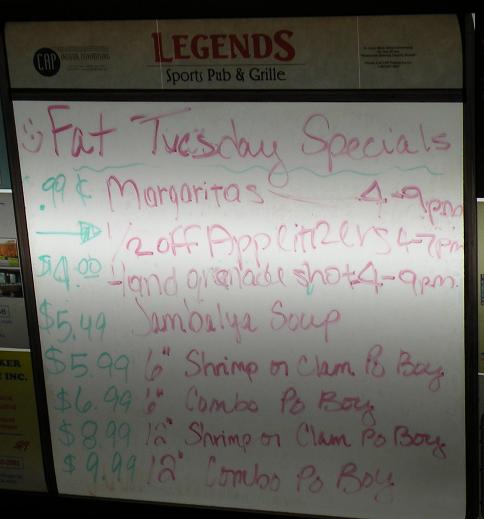 CAP
LEGENDS
Sports Pub & Grille
Fat Tuesday Specials
.99¢ Margaritas 4-9pm
1/2 off Appetitizers 4-7pm
$4.00 Hand granade shot 4-9pm.
$5.49 Jambalya Soup
$5.99 6" Shrimp or Clam Po Boy
$6.99 6" Combo Po Boy
$8.99 12" Shrimp or Clam Po Boy
$9.99 12" Combo Po Boy
KER
INC.